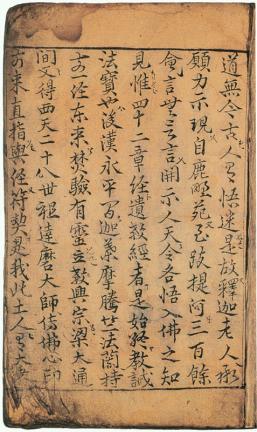 道無令古人有悟迷是故釋迦老人承
願力示現自鹿野苑至跋提河三百餘
會言無言言開示人天令各悟入佛之知
見惟四十二章經遺教經者是始終教誡
法寶也後漢永平間迦葉摩騰竺法蘭持
一經东來焚驗有靈立教興宗梁大通
間又得西天二十八世祖達磨大師傳佛心印
東來直指與經符契是我此土人有大